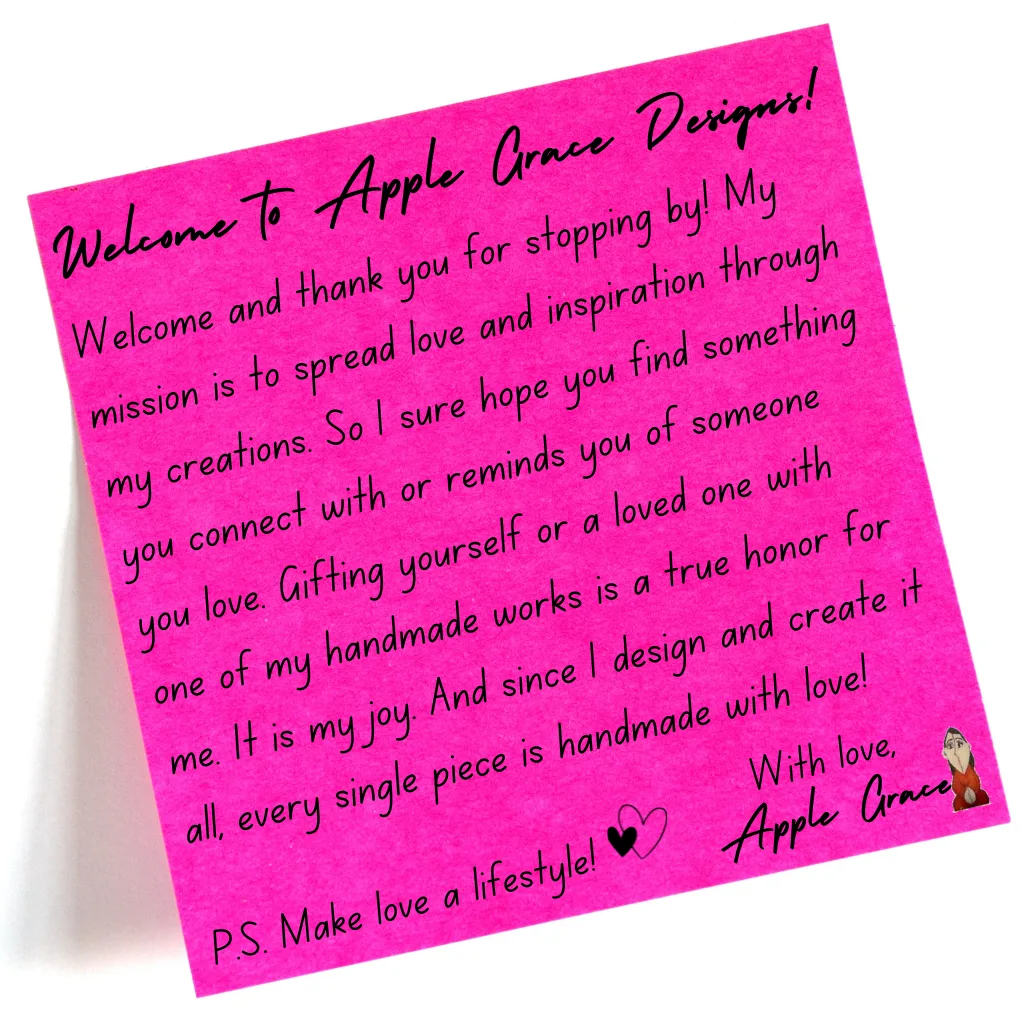 Welcome to Apple Grace Designs!
Welcome and thank you for stopping by! My
mission is to spread love and inspiration through
my creations. So I sure hope you find something
you connect with or reminds you of someone
you love. Gifting yourself or a loved one with
one of my handmade works is a true honor for
me. It is my joy. And since I design and create it
all, every single piece is handmade with love!
With love,
Apple Grace
P.S. Make love a lifestyle!